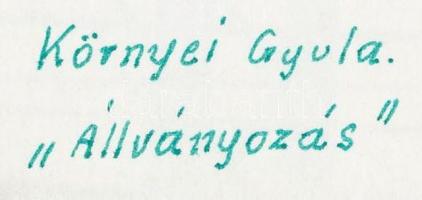 Környei Gyula.
„Állványozás”